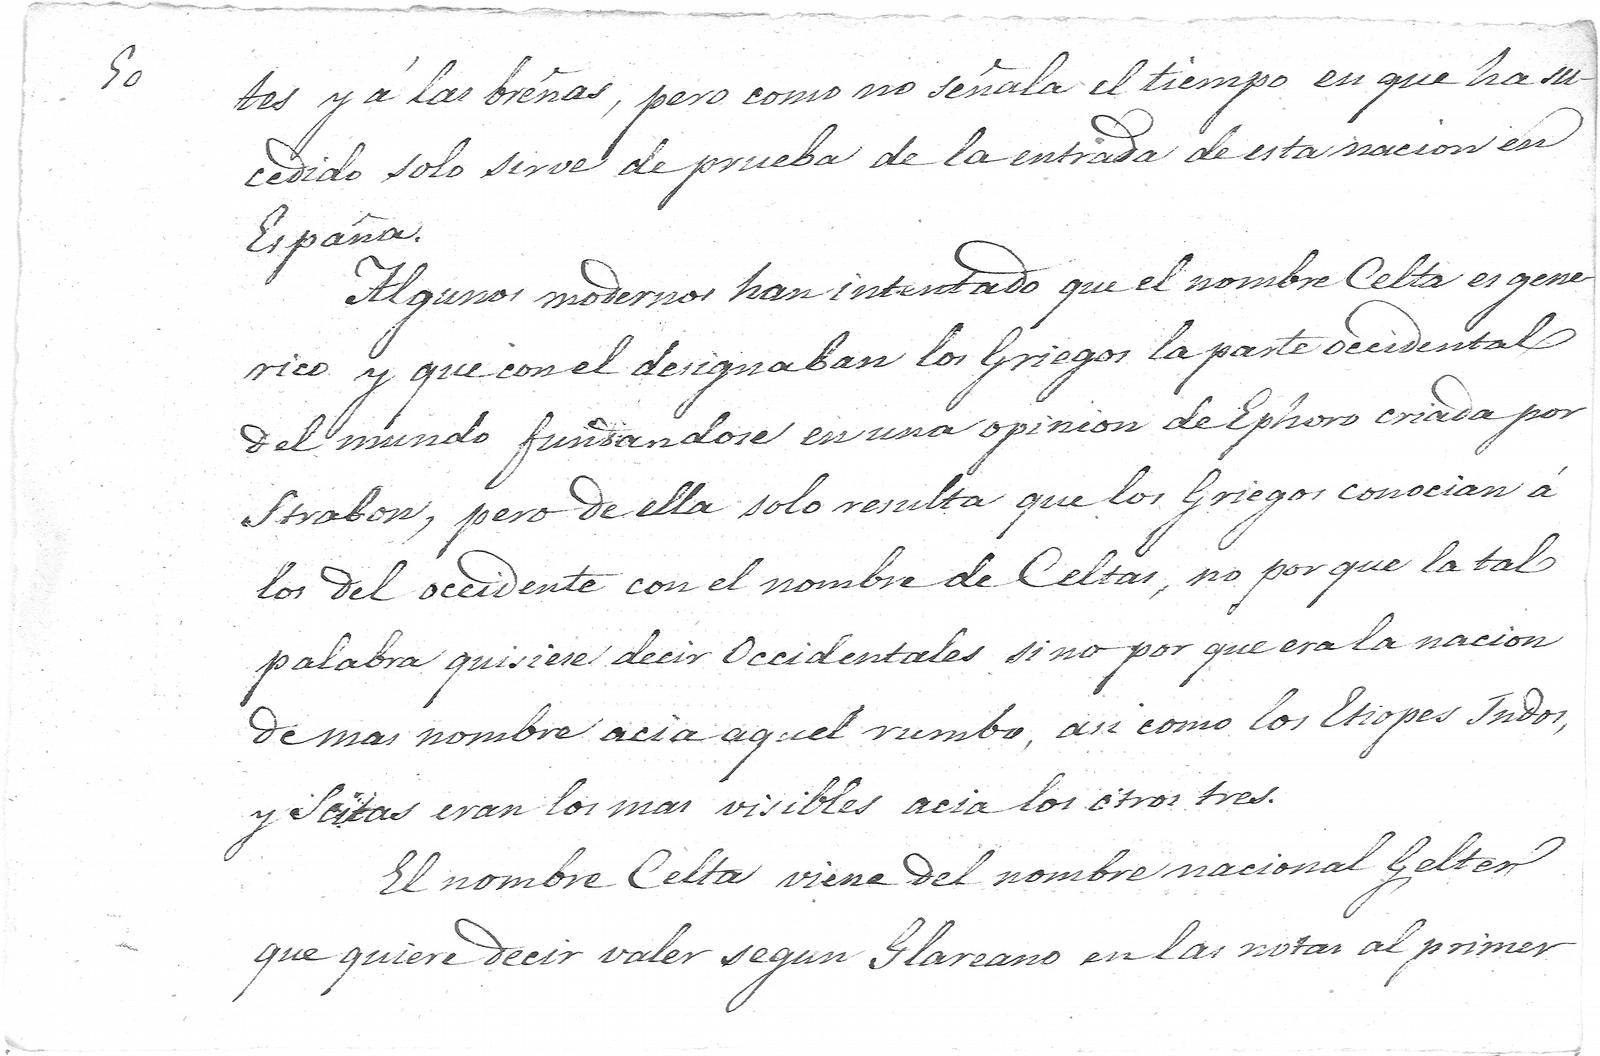 50
tes y á las breñas, pero como no señala el tiempo en que ha su-
cedido solo sirve de prueba de la entrada de esta nacion en
España.
Algunos modernos han intentado que el nombre Celta es gene
rico y que con el designaban los Griegos la parte occidental
del mundo fundandose en una opinion de Ephoro criada por
Strabon, pero de ella solo resulta que los Griegos conocian á
los del occidente con el nombre de Celtas, no por que la tal
palabra quisiese decir Occidentales sino por que era la nacion
de mas nombre acia aquel rumbo, asi como los Etiopes Indos,
y Scitas eran los mas visibles acia los otros tres.
El nombre Celta viene del nombre nacional Gelten
que quiere decir valer segun Glareano en las notas al primer